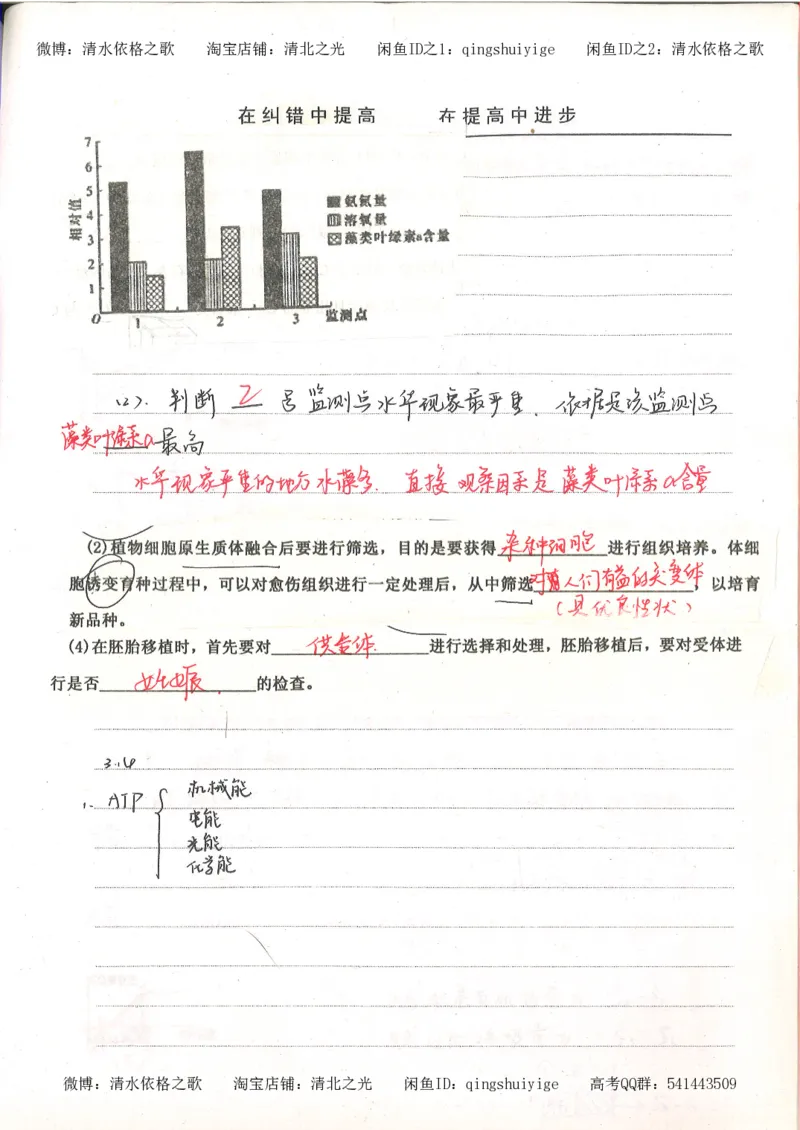 微博：清水依格之歌 淘宝店铺：清北之光 闲鱼ID之1：qingshuiyige 闲鱼ID之2：清水依格之歌
在纠错中提高 在提高中进步
7
6
5
4
3
2
1
0
相对值
氨氮量
溶氧量
藻类叶绿素a含量
1 2 3 监测点
(2). 判断 2 号监测点水华现象最严重．依据是该监测点
藻类叶绿素a最高
水华现象严重的地方水藻多．直接观察因素是藻类叶绿素a含量
(2)植物细胞原生质体融合后要进行筛选，目的是要获得杂种细胞进行组织培养。体细
胞诱变育种过程中，可以对愈伤组织进行一定处理后，从中筛选对人们有益的突变体，以培育
(具优良性状)
新品种。
(4)在胚胎移植时，首先要对供受体进行选择和处理，胚胎移植后，要对受体进
行是否妊娠的检查。
3.14
1. ATP { 机械能
电能
光能
化学能
微博：清水依格之歌 淘宝店铺：清北之光 闲鱼ID：qingshuiyige 高考QQ群：541443509